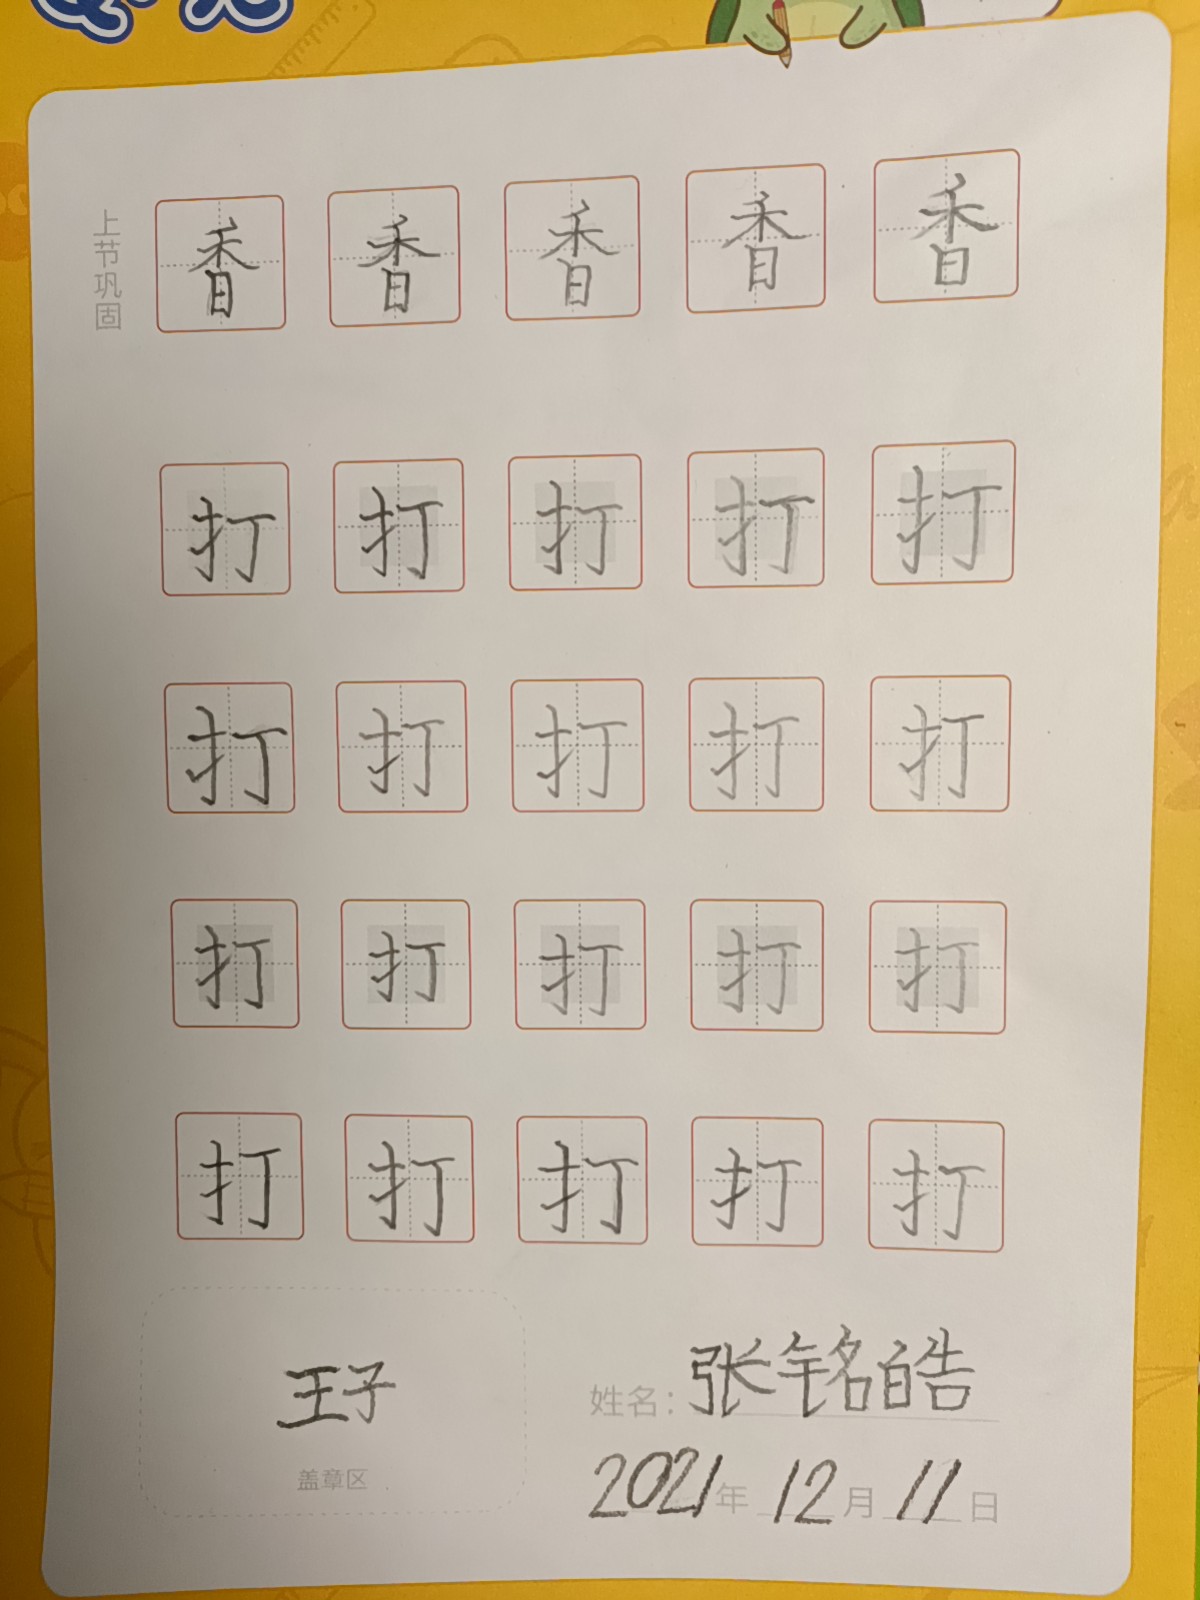 上节巩固
香 香 香 香 香
打 打 打 打 打
打 打 打 打 打
打 打 打 打 打
打 打 打 打 打
王子
盖章区
姓名：张铭皓
2021年12月11日